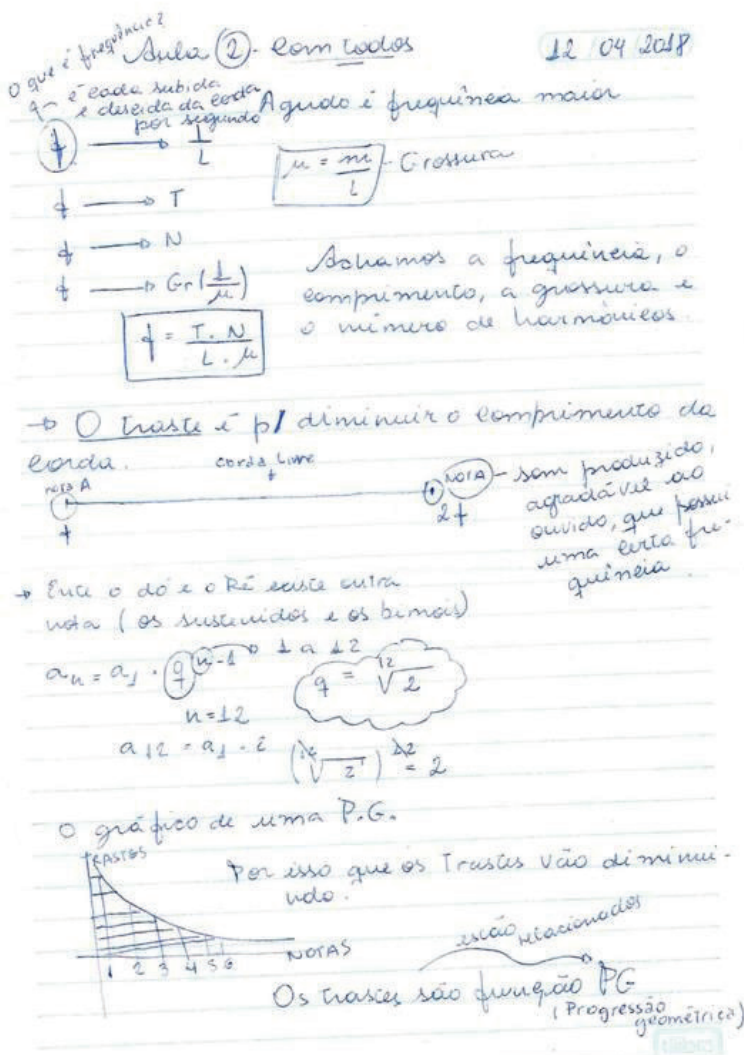 O que é frequência?
Aula 2 - Com todos
12 04 2018
é cada subida
e descida da corda
por segundo
Agudo é frequência maior
f → 1/L
μ = m/L - Grossura
f → T
f → N
f → Gr(1/μ)
Achamos a frequência, o
comprimento, a grossura e
o número de harmônicos.
f = T. N / L. μ
→ O traste é p/ diminuir o comprimento da
corda.
corda livre
nota A
f
2f
NOTA - som produzido,
agradável ao
ouvido, que possui
uma certa fre-
quência.
→ Entre o dó e o Ré existe outra
nota (os sustenidos e os bemóis)
an = a1 . q^n-1 → 1 a 12
q = ¹²√2
n=12
a12 = a1 . 2
(¹²√2)^12 = 2
O gráfico de uma P.G.
TRASTES
Por isso que os Trastes vão diminui-
ndo.
1 2 3 4 5 6
NOTAS
estão relacionados
Os trastes são função PG
(Progressão
geométrica)